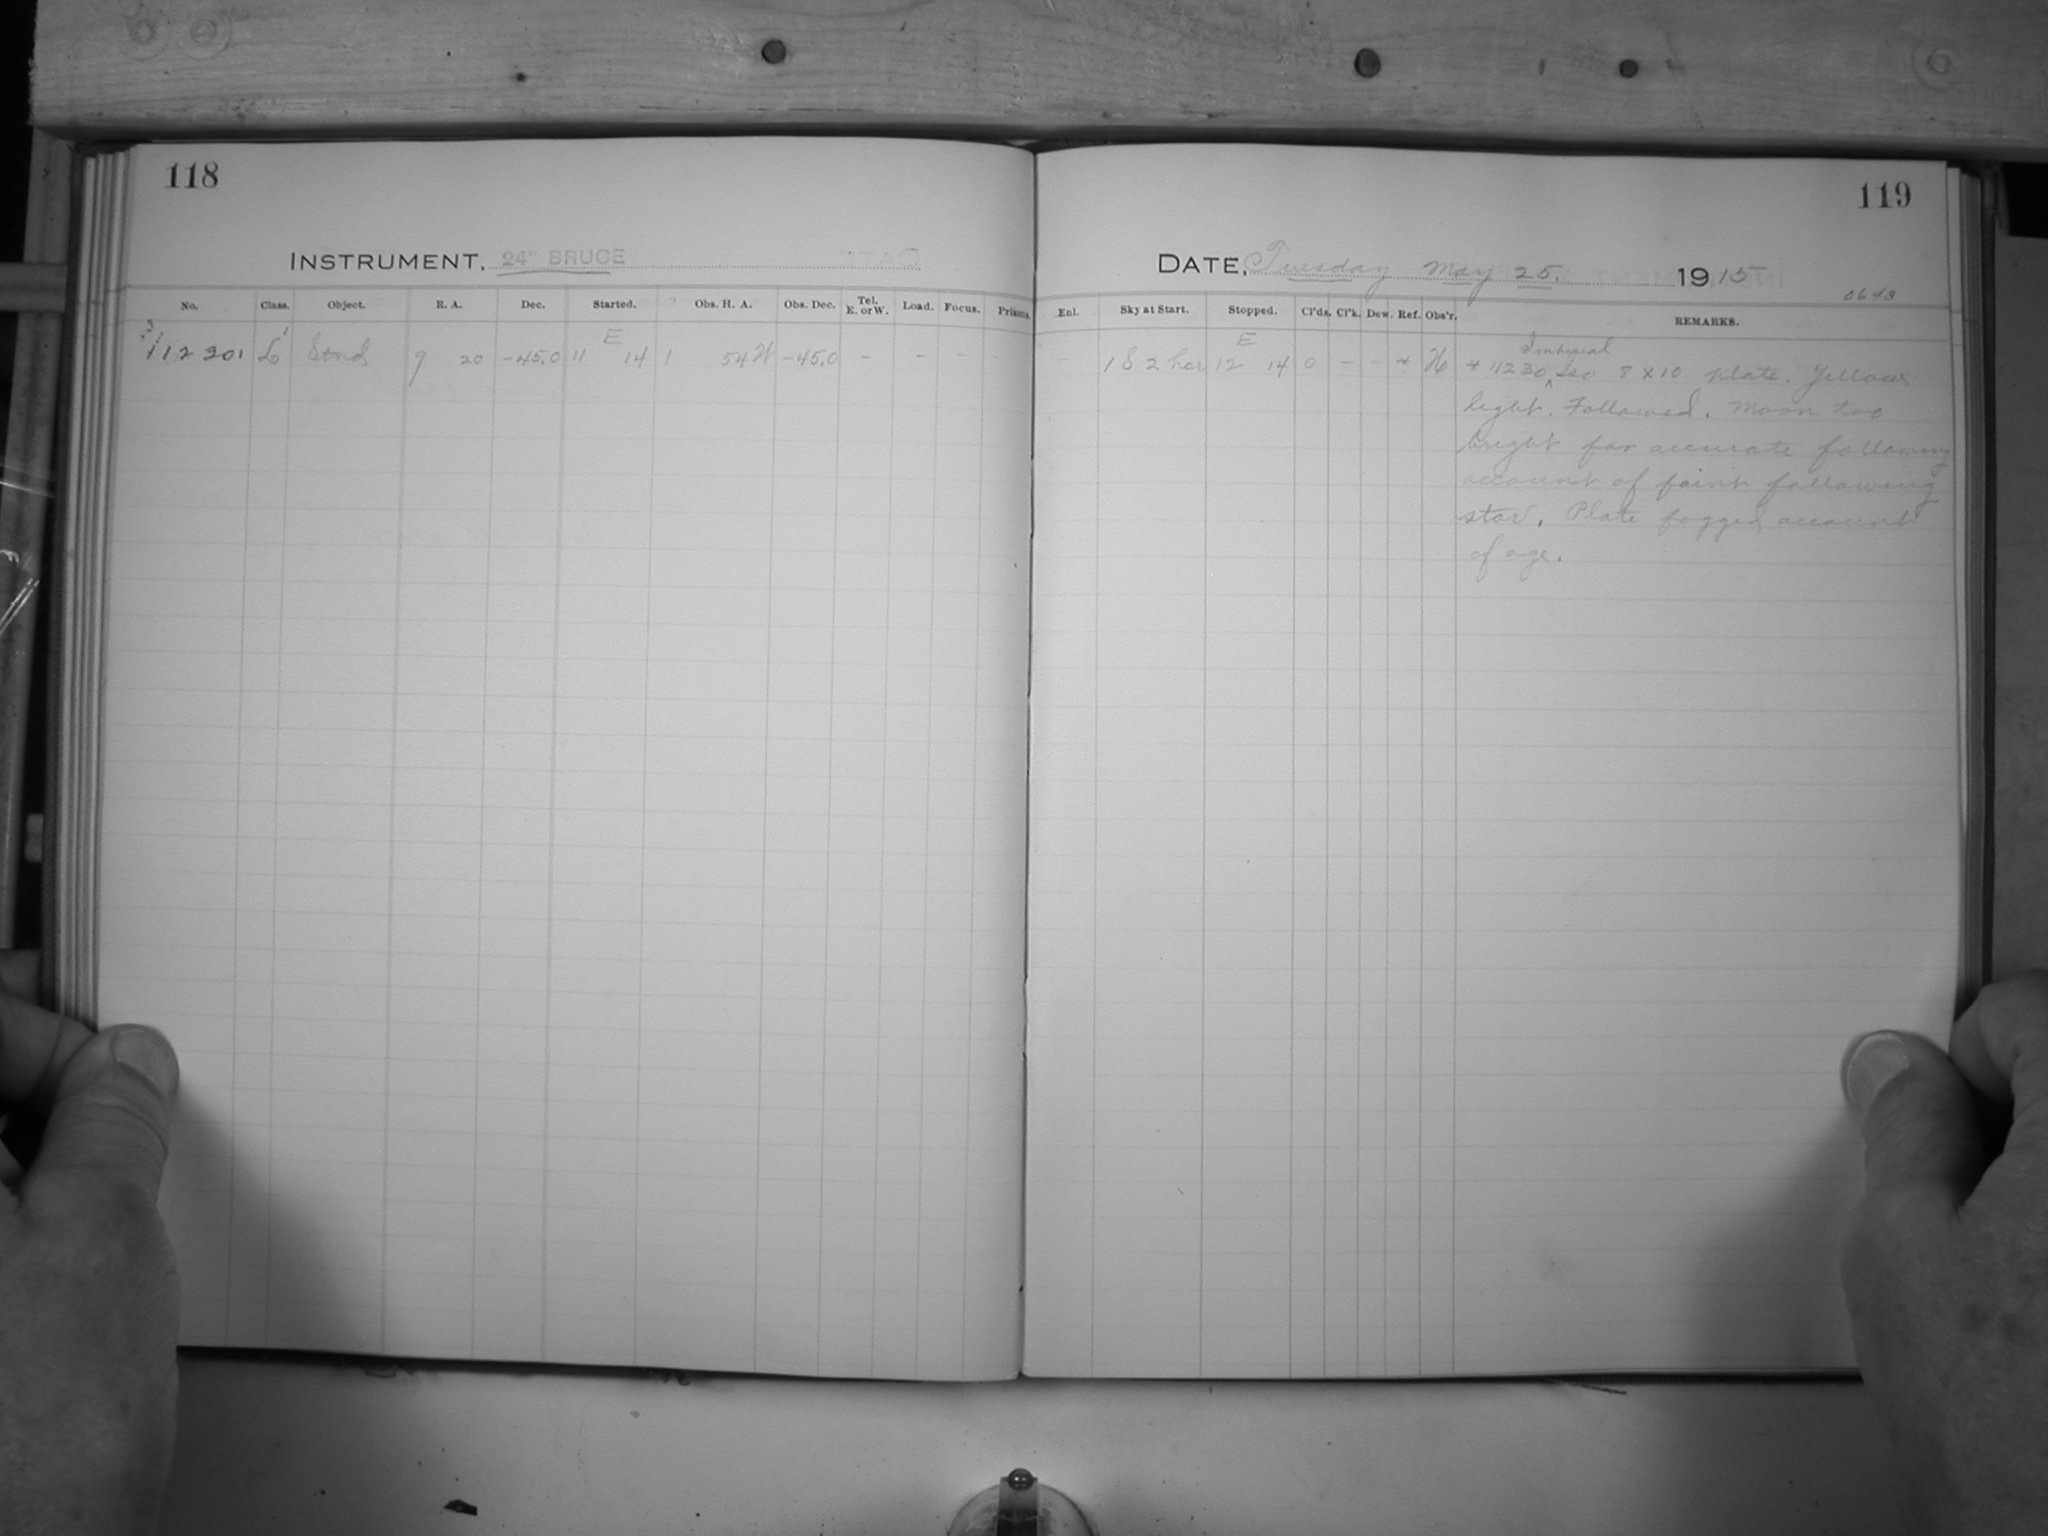 118
119
INSTRUMENT, 24" BRUCE
DATE, Tuesday May 25, 1915
0648
No. Class. Object. R. A. Dec. Started. Obs. H. A. Obs. Dec. Tel. E. or W. Load. Focus. Prisms.
Enl. Sky at Start. Stopped. Cl'ds. Cl'k. Dew. Ref. Obs'r. REMARKS.
E
11230 9 20 -45.0 11 14 1 54 W -45.0 - - -
E
12 14 0 - - * H * 11230 Imperial 8 x 10 plate. Yellow
light. Followed. Moon too
bright for accurate following
account of faint following
star. Plate fogged account
of age.